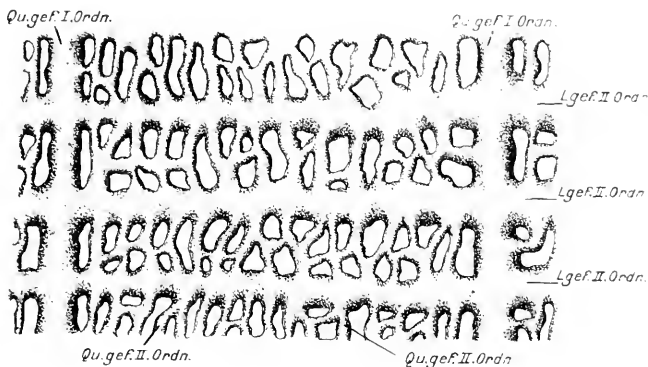 Qu.gef. I. Ordn.
Qu.gef. I. Ordn.
L.gef. II. Ordn
L.gef. II. Ordn
L.gef. II. Ordn.
Qu.gef. II. Ordn.
Qu.gef. II. Ordn